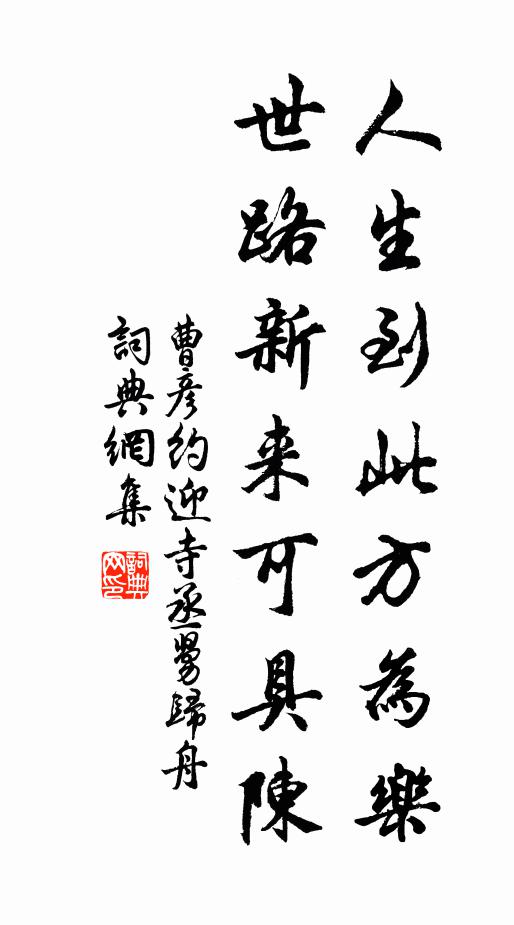 人生到此方為樂
世路新来可具陳
曹彦約迎寺丞舅歸舟
詞典網集
詞典网印